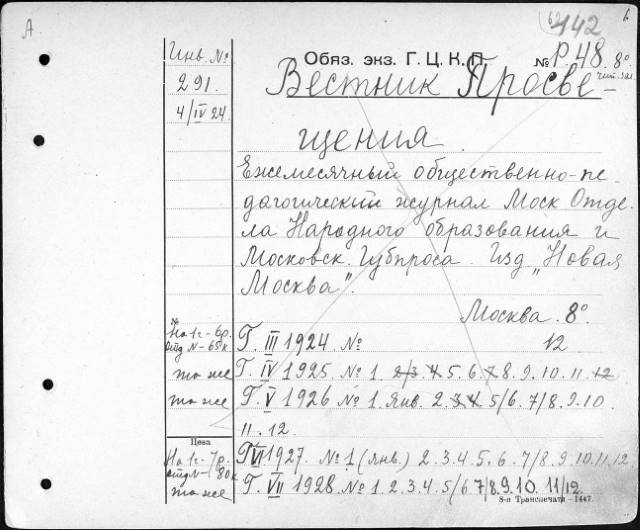 А.
142
6
Инв. №
Обяз. экз. Г. Ц. К. П.
№ Р. 48. 8°
291.
чит. зал
4/IV 24
Вестник Просве-
щения.
Ежемесячный общественно-пе-
дагогический журнал Моск Отде-
ла Народного образования и
Московск. Губпроса. Изд „Новая
Москва“.
Москва. 8°.
№
На 1 г – 6 р.
отд № – 65 к
Г. III 1924. № 12
то же
Г. IV 1925. № 1. 2/3. 4. 5. 6. 7/8. 9. 10. 11. 12
то же
Г. V 1926 № 1. Янв. 2. 3. 4. 5/6. 7/8. 9. 10.
11. 12.
Цена
На 1 г – 7 р.
отд № – 80 к
Г VI 1927. № 1 (янв.) 2. 3. 4. 5. 6. 7/8. 9. 10. 11. 12
то же
Г. VII 1928 № 1. 2. 3. 4. 5/6. 7/8. 9. 10. 11/12.
8-я Транспечати – 1447.